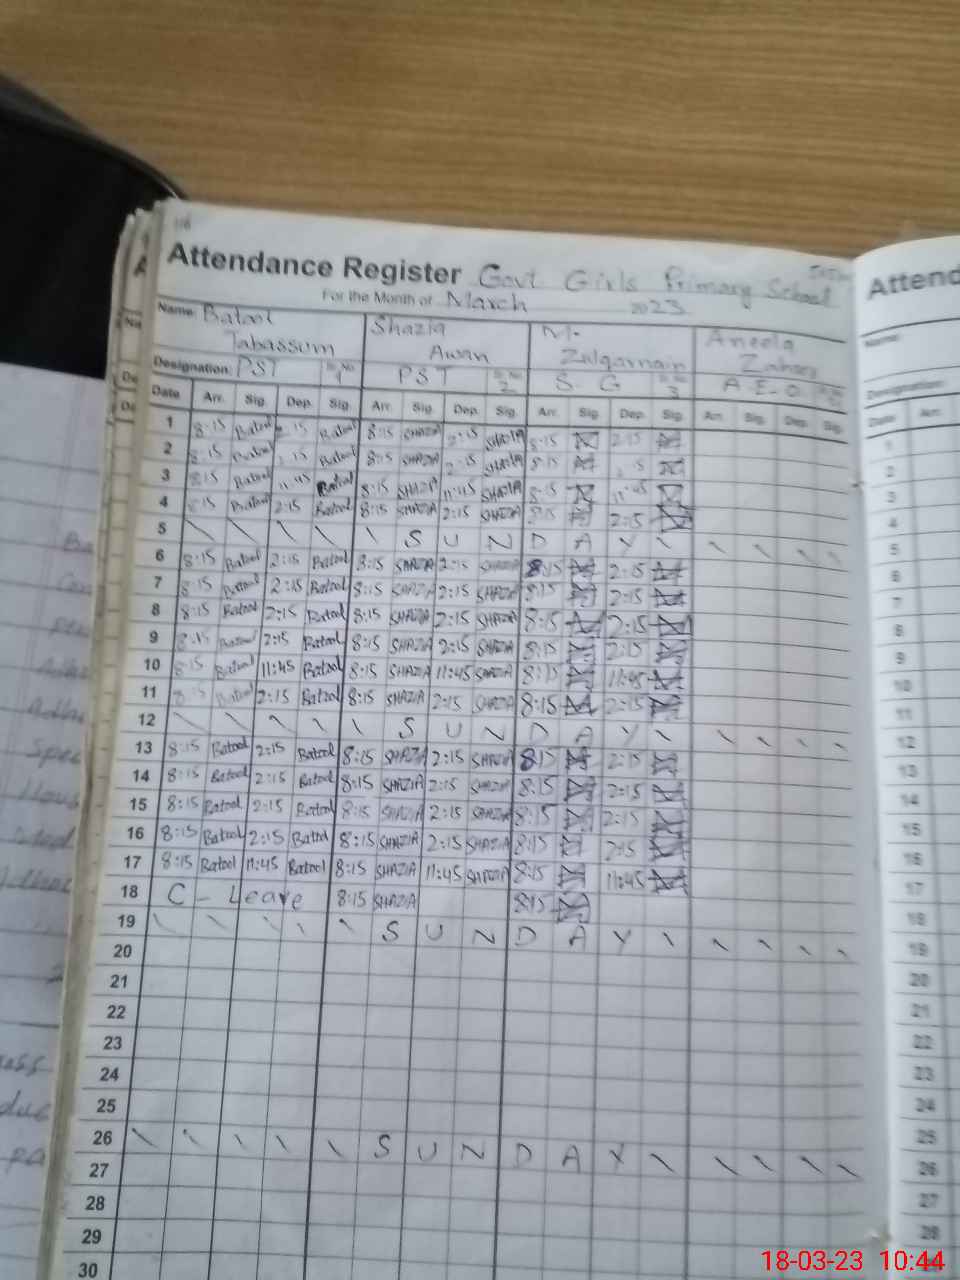 116
Attendance Register Govt Girls Primary School
For the Month of March 2023
Name: Batool Tabassum Shazia Awan M. Zulqarnain Aneela
Designation: PST Sr. No 1 PST Sr. No 2 S. G Sr. No 3 A.E-O.
Date Arr. Sig. Dep. Sig. Arr. Sig. Dep. Sig. Arr. Sig. Dep. Sig. Arr. Sig. Dep. Sig.
1 8:15 Batool 2:15 Batool 8:15 SHAZIA 2:15 SHAZIA 8:15 2:15
2 8:15 Batool 2:15 Batool 8:15 SHAZIA 2:15 SHAZIA 8:15
3 8:15 Batool 11:45 Batool 8:15 SHAZIA 11:45 SHAZIA 8:15 11:45
4 8:15 Batool 2:15 Batool 8:15 SHAZIA 2:15 SHAZIA 8:15 2:15
5 \ \ \ \ \ S U N D A Y \ \ \ \ \
6 8:15 Batool 2:15 Batool 8:15 SHAZIA 2:15 SHAZIA 8:15 2:15
7 8:15 Batool 2:15 Batool 8:15 SHAZIA 2:15 SHAZIA 8:15 2:15
8 8:15 Batool 2:15 Batool 8:15 SHAZIA 2:15 SHAZIA 8:15 2:15
9 8:15 Batool 2:15 Batool 8:15 SHAZIA 2:15 SHAZIA 8:15 2:15
10 8:15 Batool 11:45 Batool 8:15 SHAZIA 11:45 SHAZIA 8:15 11:45
11 8:15 Batool 2:15 Batool 8:15 SHAZIA 2:15 SHAZIA 8:15 2:15
12 \ \ \ \ \ S U N D A Y \ \ \ \ \
13 8:15 Batool 2:15 Batool 8:15 SHAZIA 2:15 SHAZIA 8:15 2:15
14 8:15 Batool 2:15 Batool 8:15 SHAZIA 2:15 SHAZIA 8:15 2:15
15 8:15 Batool 2:15 Batool 8:15 SHAZIA 2:15 SHAZIA 8:15 2:15
16 8:15 Batool 2:15 Batool 8:15 SHAZIA 2:15 SHAZIA 8:15 2:15
17 8:15 Batool 11:45 Batool 8:15 SHAZIA 11:45 SHAZIA 8:15 11:45
18 C - Leave 8:15 SHAZIA 8:15
19 \ \ \ \ \ S U N D A Y \ \ \ \ \
20
21
22
23
24
25
26 \ \ \ \ \ S U N D A Y \ \ \ \ \
27
28
29
30
Attend
Name:
Designation:
Date Arr.
1
2
3
4
5
6
7
8
9
10
11
12
13
14
15
16
17
18
19
20
21
22
23
24
25
26
27
28
18-03-23 10:44